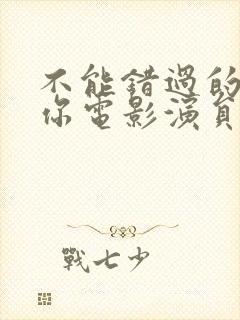 不能錯過的
你電影演員
戰七少